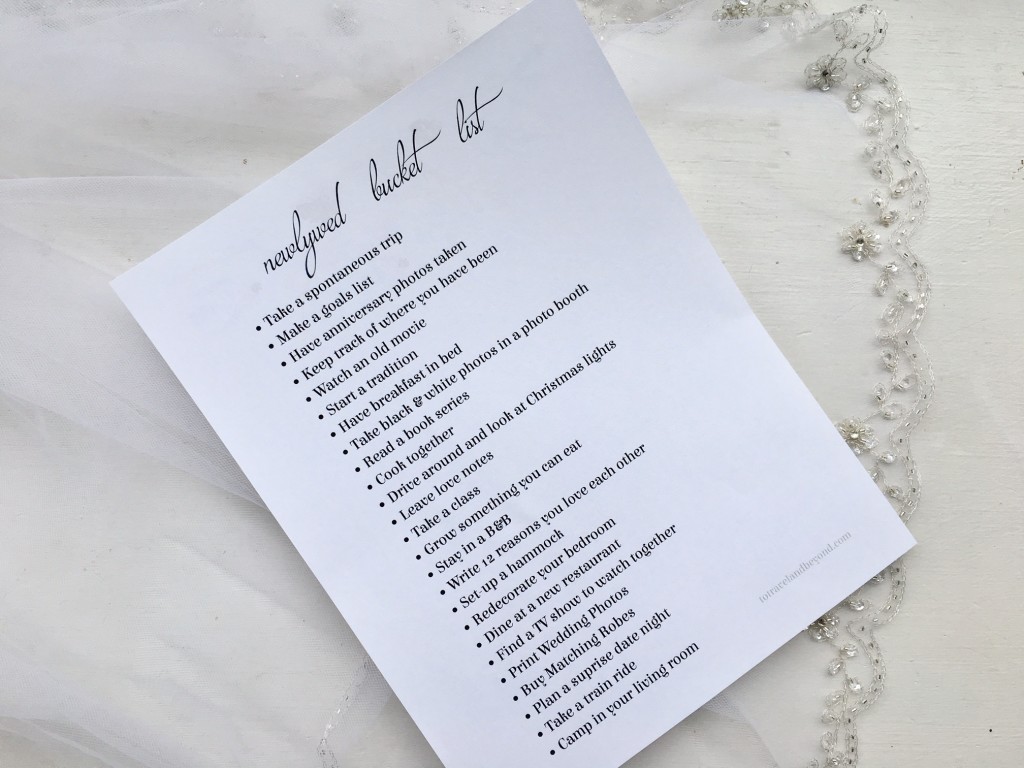 newlywed bucket list
• Take a spontaneous trip
• Make a goals list
• Have anniversary photos taken
• Keep track of where you have been
• Watch an old movie
• Start a tradition
• Have breakfast in bed
• Take black & white photos in a photo booth
• Read a book series
• Cook together
• Drive around and look at Christmas lights
• Leave love notes
• Take a class
• Grow something you can eat
• Stay in a B&B
• Write 12 reasons you love each other
• Set-up a hammock
• Redecorate your bedroom
• Dine at a new restaurant
• Find a TV show to watch together
• Print Wedding Photos
• Buy Matching Robes
• Plan a suprise date night
• Take a train ride
• Camp in your living room
totravelandbeyond.com